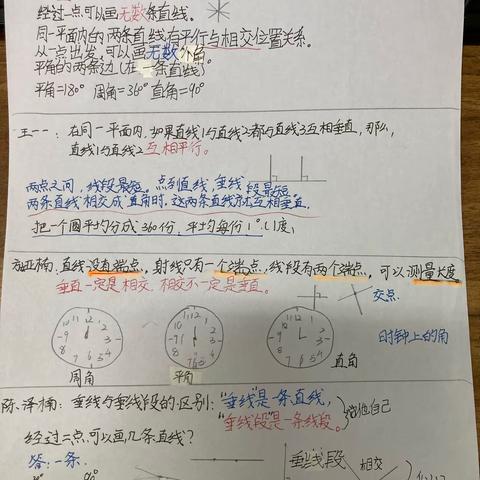 经过一点可以画无数条直线。
同一平面内的两条直线有平行与相交位置关系。
从一点出发,可以画无数个角
平角的两条边(在一条直线)。
平角=180° 周角=360° 直角=90°
王一一:在同一平面内,如果直线1与直线2都与直线3互相垂直,那么,
直线1与直线2互相平行。
两点之间,线段最短。点到直线,垂线段最短
两条直线相交成直角时,这两条直线就互相垂直.
把一个圆平均分成360份,平均每份1°.(1度)
直线没有端点,射线只有一个端点,线段有两个端点,可以测量长度
垂直一定是相交,相交不一定是垂直。
交点
时钟上的角
10 11 12 1 2 3 4 5 6 7 8 9
10 11 12 1 2 3 4 5 6 7 8 9
10 11 12 1 2 3 4 5 6 7 8 9
周角 平角 直角
陈泽楠:垂线与垂线段的区别:"垂线"是一条直线,
"垂线段"是一条线段。
经过二点可以画几条直线?
答:一条.
垂线段 相交
90°